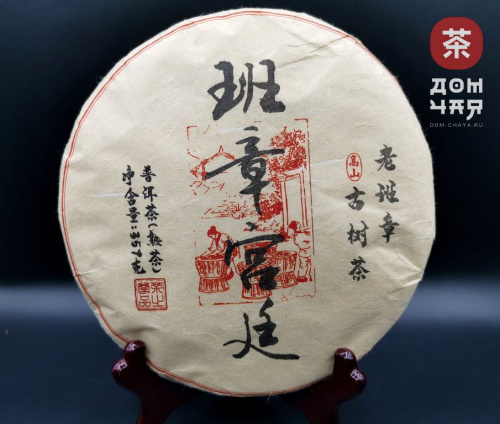 茶
ДОМ
ЧАЯ
DOM-CHAYA.RU
班章宫廷
老班章
高山
古树茶
普洱茶(熟茶)
净含量:357克